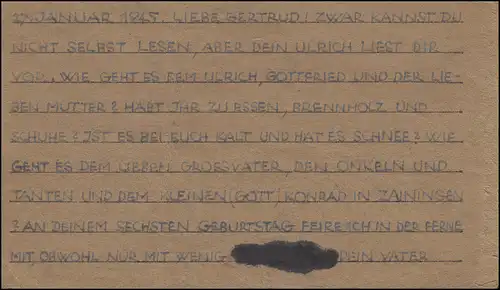 27. JANUAR 1945. LIEBE GERTRUD! ZWAR KANNST DU
NICHT SELBST LESEN, ABER DEIN ULRICH LIEST DIR
VOR. WIE GEHT ES DEM ULRICH, GOTTFRIED UND DER LIE-
BEN MUTTER? HABT IHR ZU ESSEN, BRENNHOLZ UND
SCHUHE? IST ES BEI EUCH KALT UND HAT ES SCHNEE? WIE
GEHT ES DEM LIEBEN GROSSVATER, DEN ONKELN UND
TANTEN UND DEM KLEINEN (GOTT) KONRAD IN ZAININGEN
? AN DEINEM SECHSTEN GEBURTSTAG FEIRE ICH IN DER FERNE
MIT, OBWOHL NUR MIT WENIG DEIN VATER